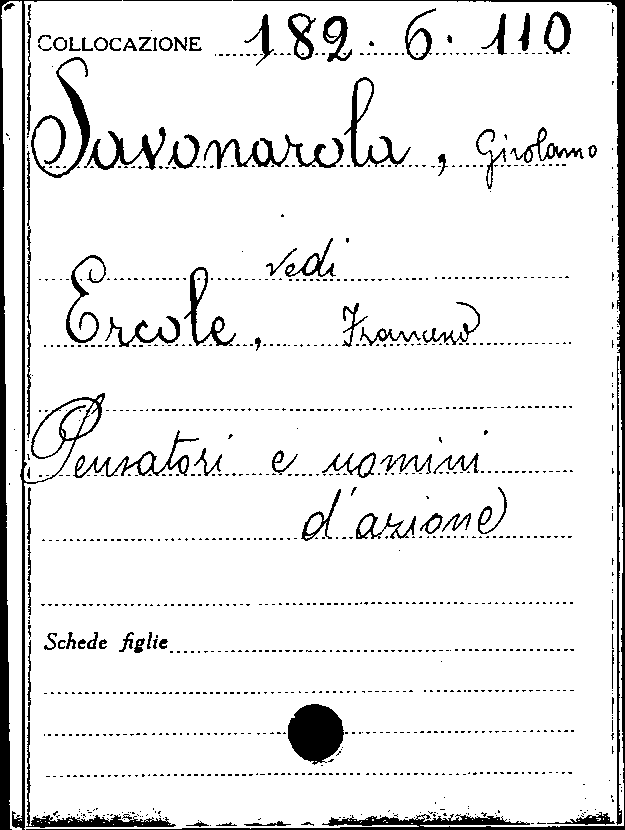 COLLOCAZIONE 182. 6. 110
Savonarola, Girolamo
vedi
Ercole, Francesco
Pensatori e uomini
d'azione
Schede figlie